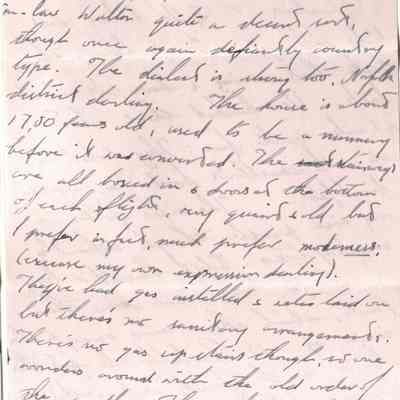 in-law Walton quite a decent sort,
though once again definitely country
type. The dialect is strong too,
district darling. The house is about
1700 years old, used to be a nunnery
before it was converted. The stairways
are all boxed in & doors at the bottom
of each flight, very quaint & old but
I prefer infact, much prefer modernness,
(excuse my own expression darling).
They've had gas installed & water laid on
but there's no sanitary arrangements.
There's no gas upstairs though, so one
wanders around with the old order of
the